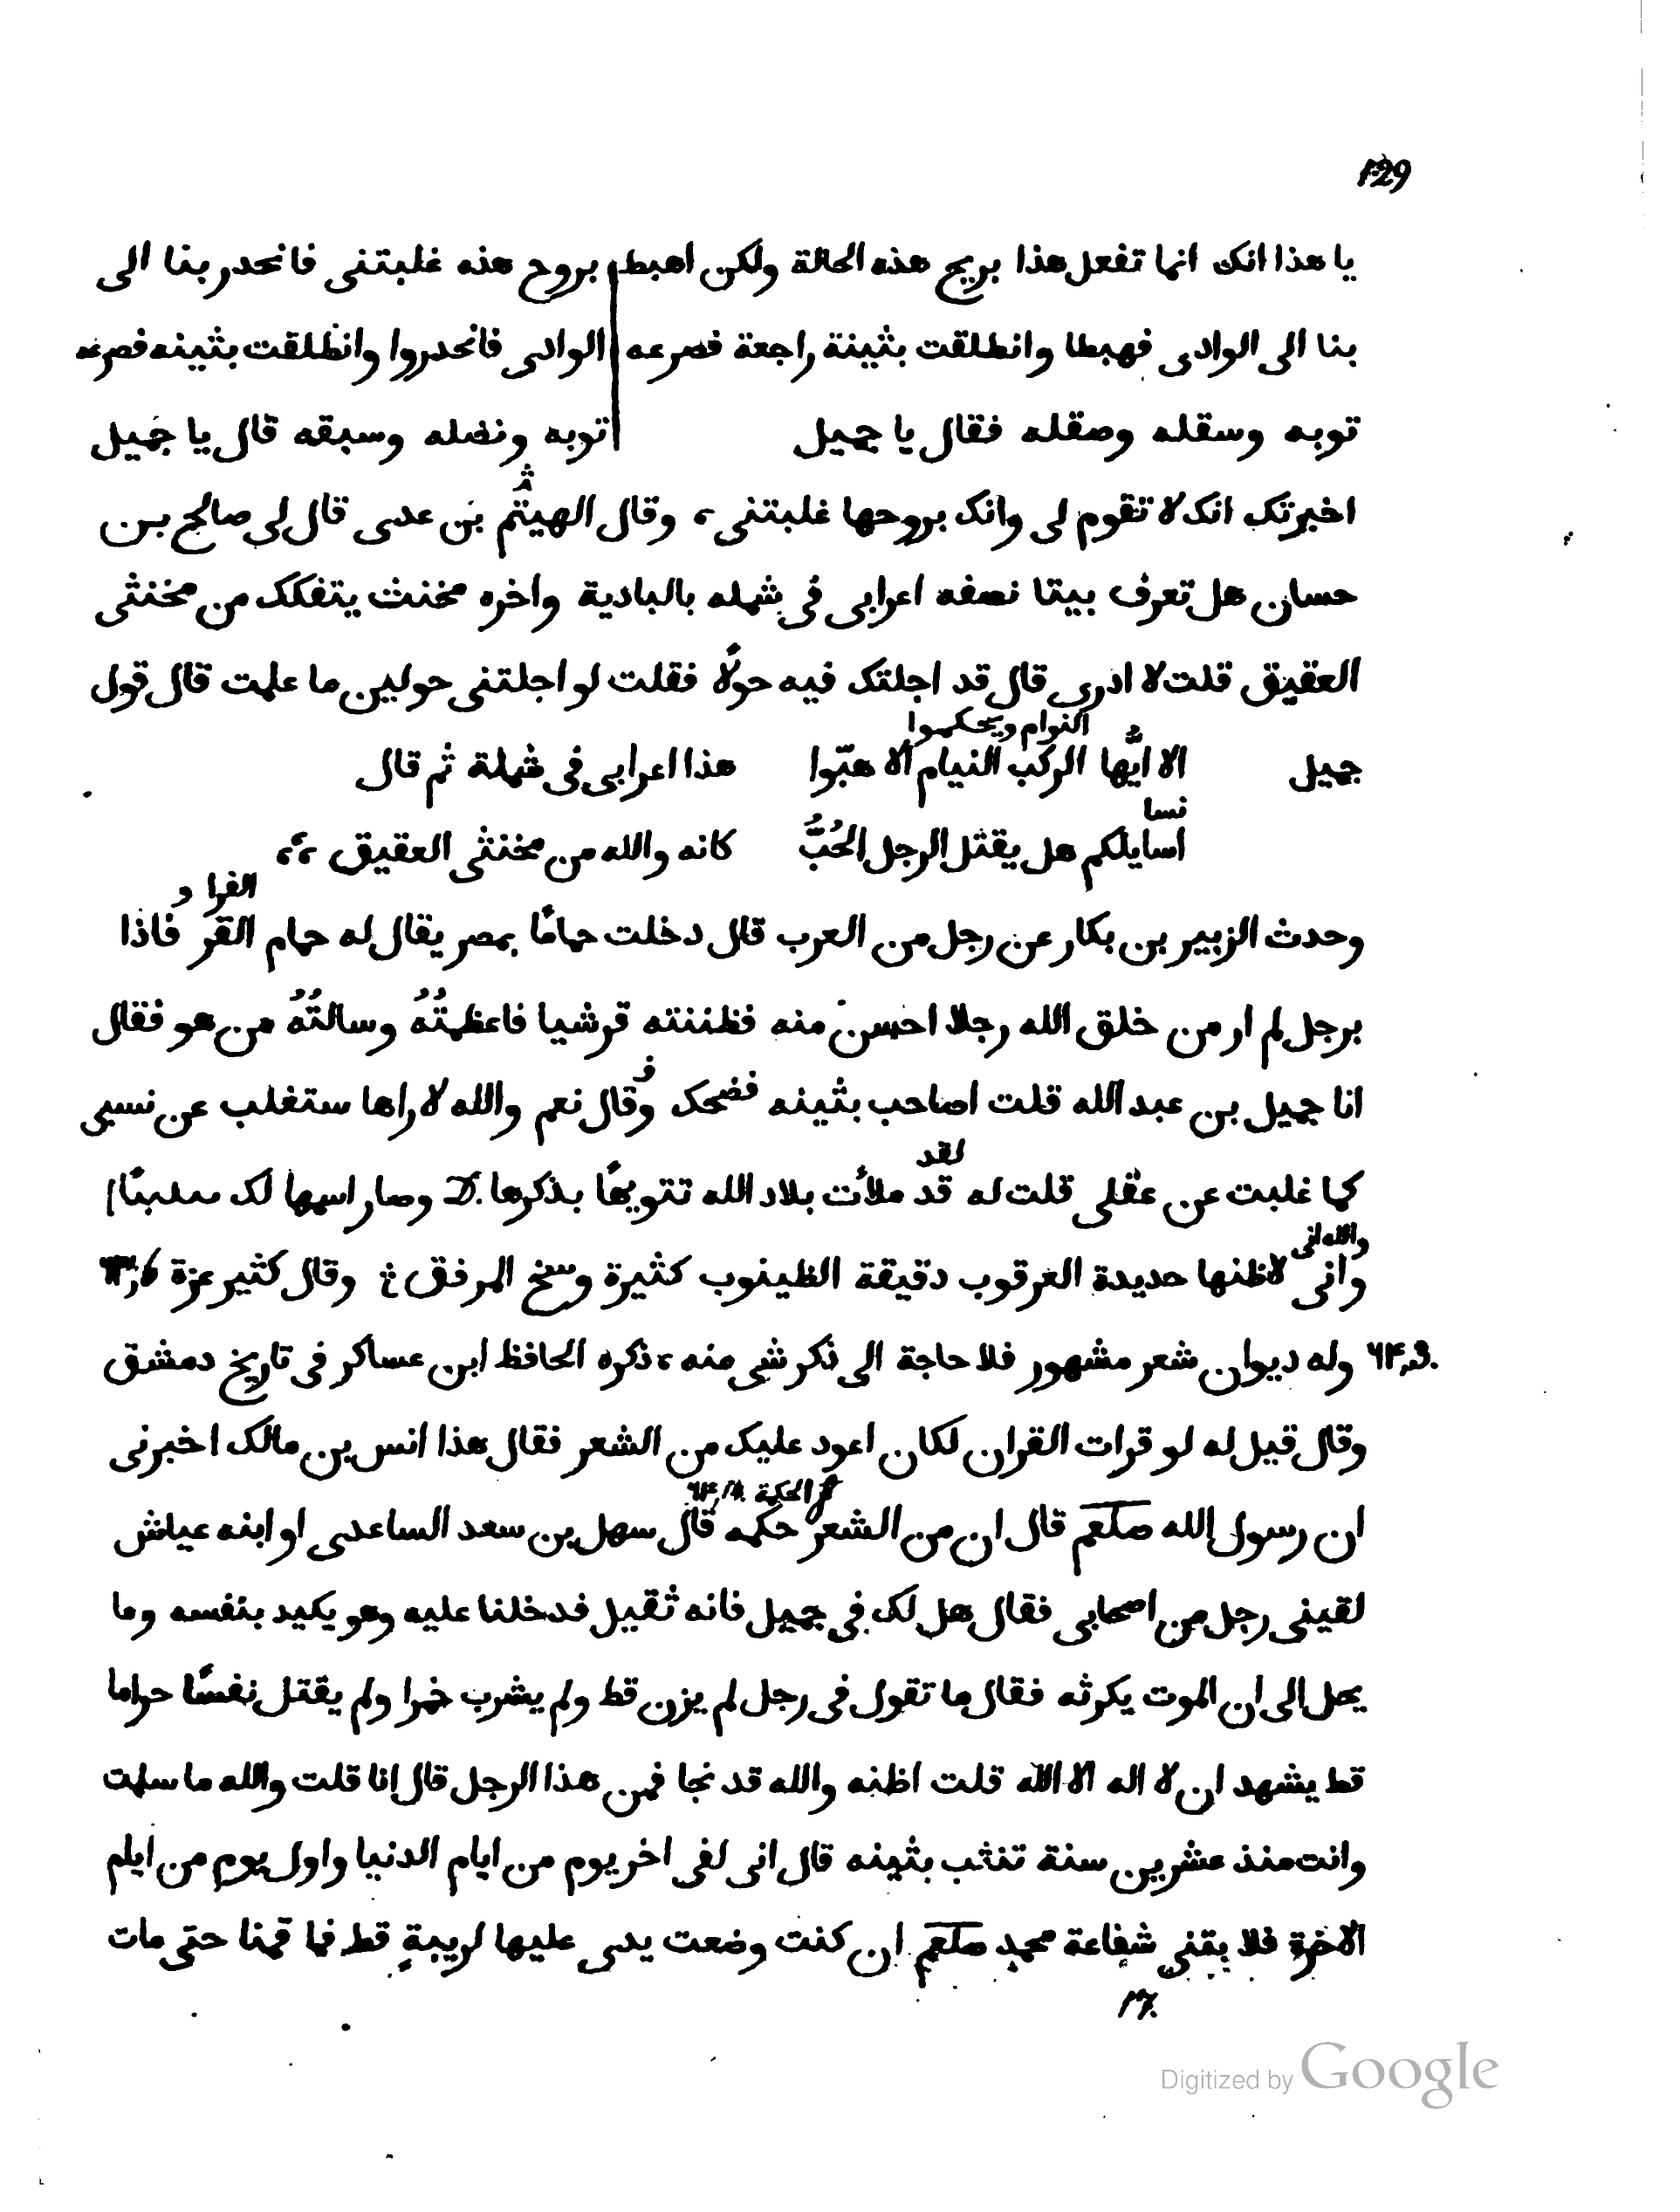 129
يا هذا انك انما تفعل هذا بريح هذه الحالة ولكن اهبط بروح هذه غلبتنى فانحدر بنا الى
بنا الى الوادى فهبطا وانطلقت بثينة راجعة فصرعه الوادى فانحدروا وانطلقت بثينه فصرعه
توبه وسقله وصقله فقال يا جميل توبه ونضله وسبقه قال يا جميل
اخبرتك انك لا تقوم لى وانك بروحها غلبتنى، وقال الهيثم بن عدى قال لى صالح بن
حسان هل تعرف بيتا نصفه اعرابى فى شمله بالبادية واخره مخنث يتفكك من مخنثى
العقيق قلت لا ادرى قال قد اجلتك فيه حولًا فقلت لو اجلتنى حولين ما علمت قال قول
النوام ويحكموا
جميل الا ايّها الركب النيام ألا هبّوا هذا اعرابى فى شملة ثم قال
نسا
اسايلكم هل يقتل الرجل الحُبُّ كانه والله من مخنثى العقيق ،،
الفرا و
وحدث الزبير بن بكار عن رجل من العرب قال دخلت حمامًا بمصر يقال له حمام القر فاذا
برجل لم ار من خلق الله رجلا احسن منه فظننته قرشيا فاعظمتُهُ وسالتُهُ من هو فقال
انا جميل بن عبد الله قلت اصاحب بثينه فضحك وقال نعم والله لاراها ستغلب عن نسبى
لقد
كما غلبت عن عقلى قلت له قد ملأت بلاد الله تنويهًا بذكرها وصار اسمها لك
والله انى
وانى لاظنها حديدة العرقوب دقيقة الظينوب كثيرة وسخ المرفق وقال كثير عزة
وله ديوان شعر مشهور فلا حاجة الى ذكر شى منه، ذكره الحافظ ابن عساكر فى تاريخ دمشق
وقال قيل له لو قرات القران لكان اعود عليك من الشعر فقال هذا انس بن مالك اخبرنى
الحكمة
ان رسول الله صلعم قال ان من الشعر حكمه قال سهل بن سعد الساعدى او ابنه عياش
لقينى رجل من اصحابى فقال هل لك فى جميل فانه ثقيل فدخلنا عليه وهو يكيد بنفسه وما
يحل الى ان الموت يكرثه فقال ما تقول فى رجل لم يزن قط ولم يشرب خمرا ولم يقتل نفسًا حراما
قط يشهد ان لا اله الا الله قلت اظنه والله قد نجا فمن هذا الرجل قال انا قلت والله ما سلمت
وانت منذ عشرين سنة تنثب بثينه قال انى لفى اخر يوم من ايام الدنيا واول يوم من ايام
الاخرة فلا بقنى شفاعة محمد صلعم ان كنت وضعت يدى عليها لريبةٍ قط فما قمنا حتى مات
Digitized by Google